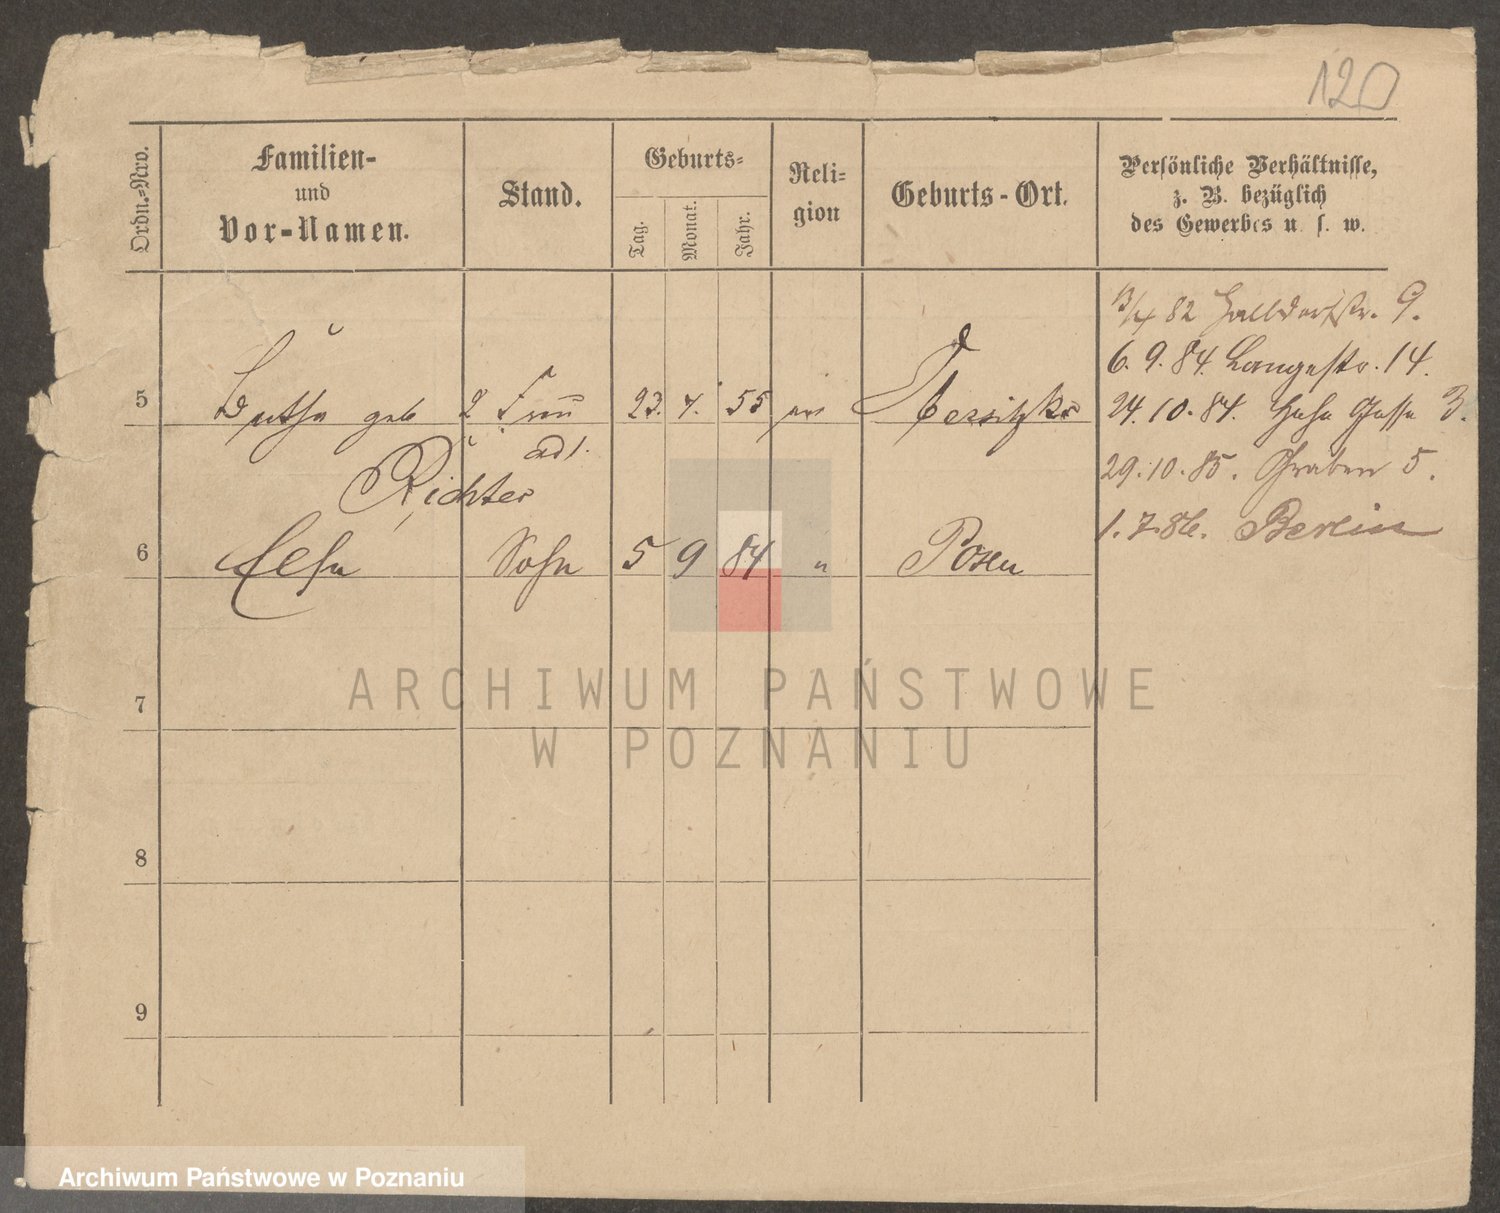 120
Ordn.-Nro.
Familien-
und
Vor-Namen.
Stand.
Geburts-
Tag.
Monat.
Jahr.
Reli-
gion
Geburts-Ort.
Persönliche Verhältnisse,
z. B. bezüglich
des Gewerbes u. s. w.
82 9.
6. 9. 84. Langestr. 14.
5 geb 2 Frau 23. 4. 55 ev
24. 10. 84. Gasse 3.
29. 10. 85. Graben 5.
Richter
1. 7. 86. Berlin
6 Sohn 5 9 84 " Posen
7
8
9
ARCHIWUM PAŃSTWOWE
W POZNANIU
Archiwum Państwowe w Poznaniu